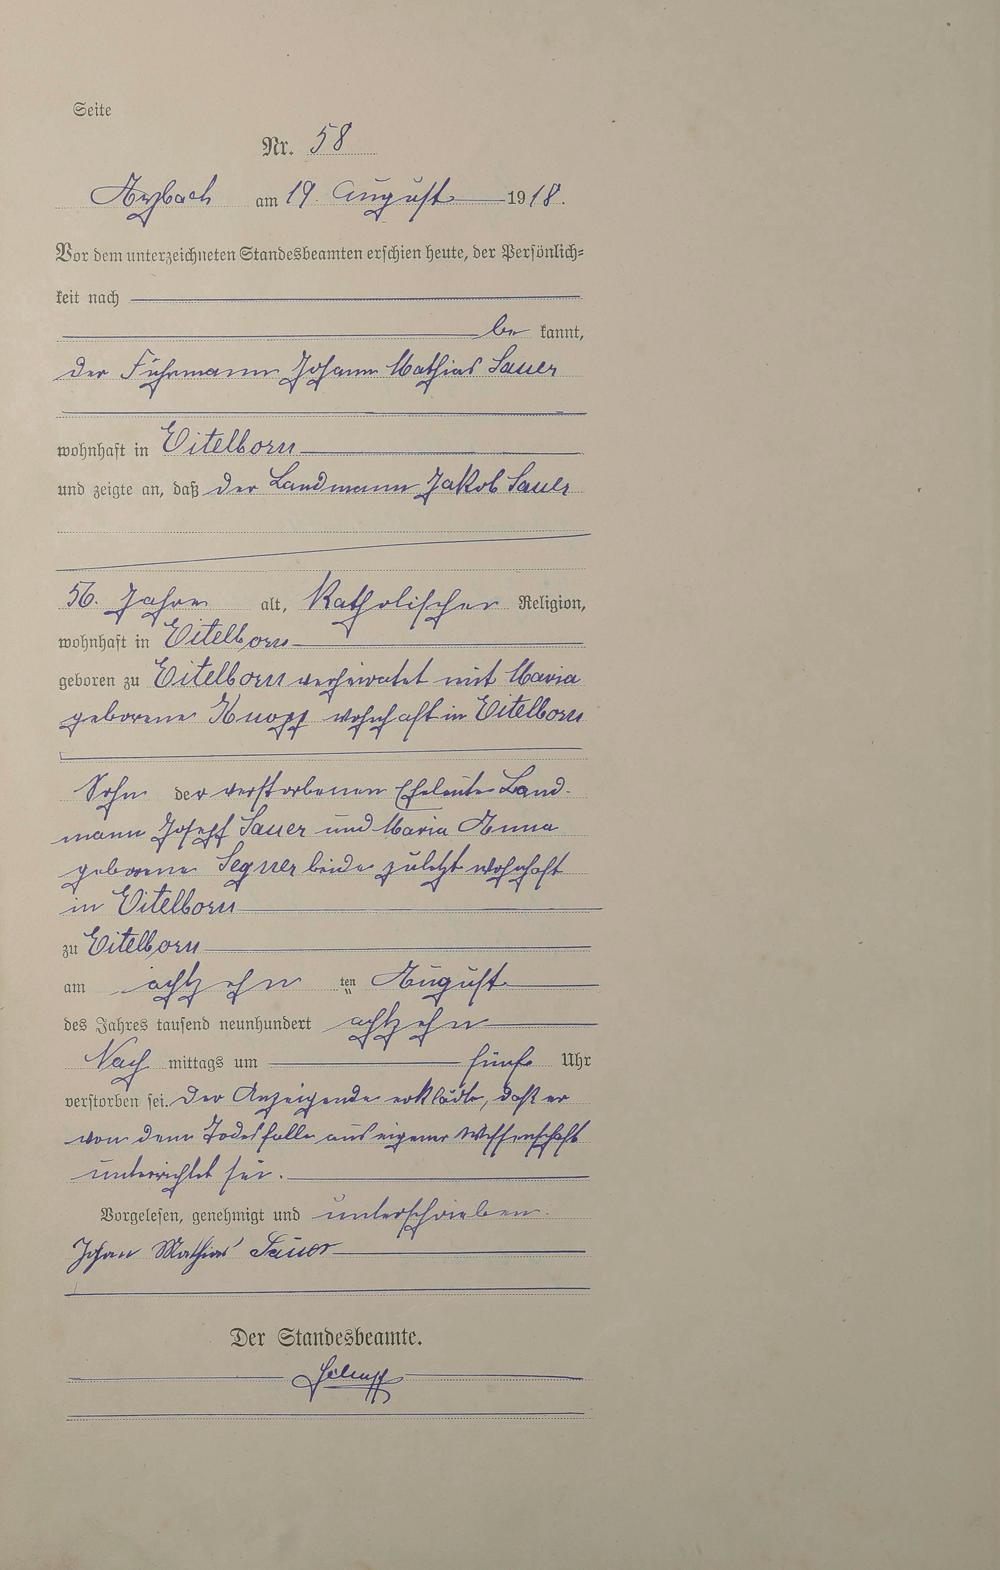 Seite
Nr. 58
Arzbach am 19. August 1918.
Vor dem unterzeichneten Standesbeamten erschien heute, der Persönlich-
keit nach
be kannt,
der Fuhrmann Johann Mathias Sauer
wohnhaft in Eitelborn
und zeigte an, daß der Landmann Jakob Sauer
56. Jahre alt, Katholischer Religion,
wohnhaft in Eitelborn
geboren zu Eitelborn verheiratet mit Maria
geborene Knopp wohnhaft in Eitelborn
Sohn der verstorbenen Eheleute Land-
mann Josepf Sauer und Maria Anna
geborene Segner beide zuletzt wohnhaft
in Eitelborn
zu Eitelborn
am achtzehn ten August
des Jahres tausend neunhundert achtzehn
Nach mittags um fünf Uhr
verstorben sei. Der Anzeigende erklädte, daß er
von dem Todesfalle aus eigener Wissenschaft
unterrichtet sei.
Vorgelesen, genehmigt und unterschrieben.
Johan Mathias Sauer
Der Standesbeamte.